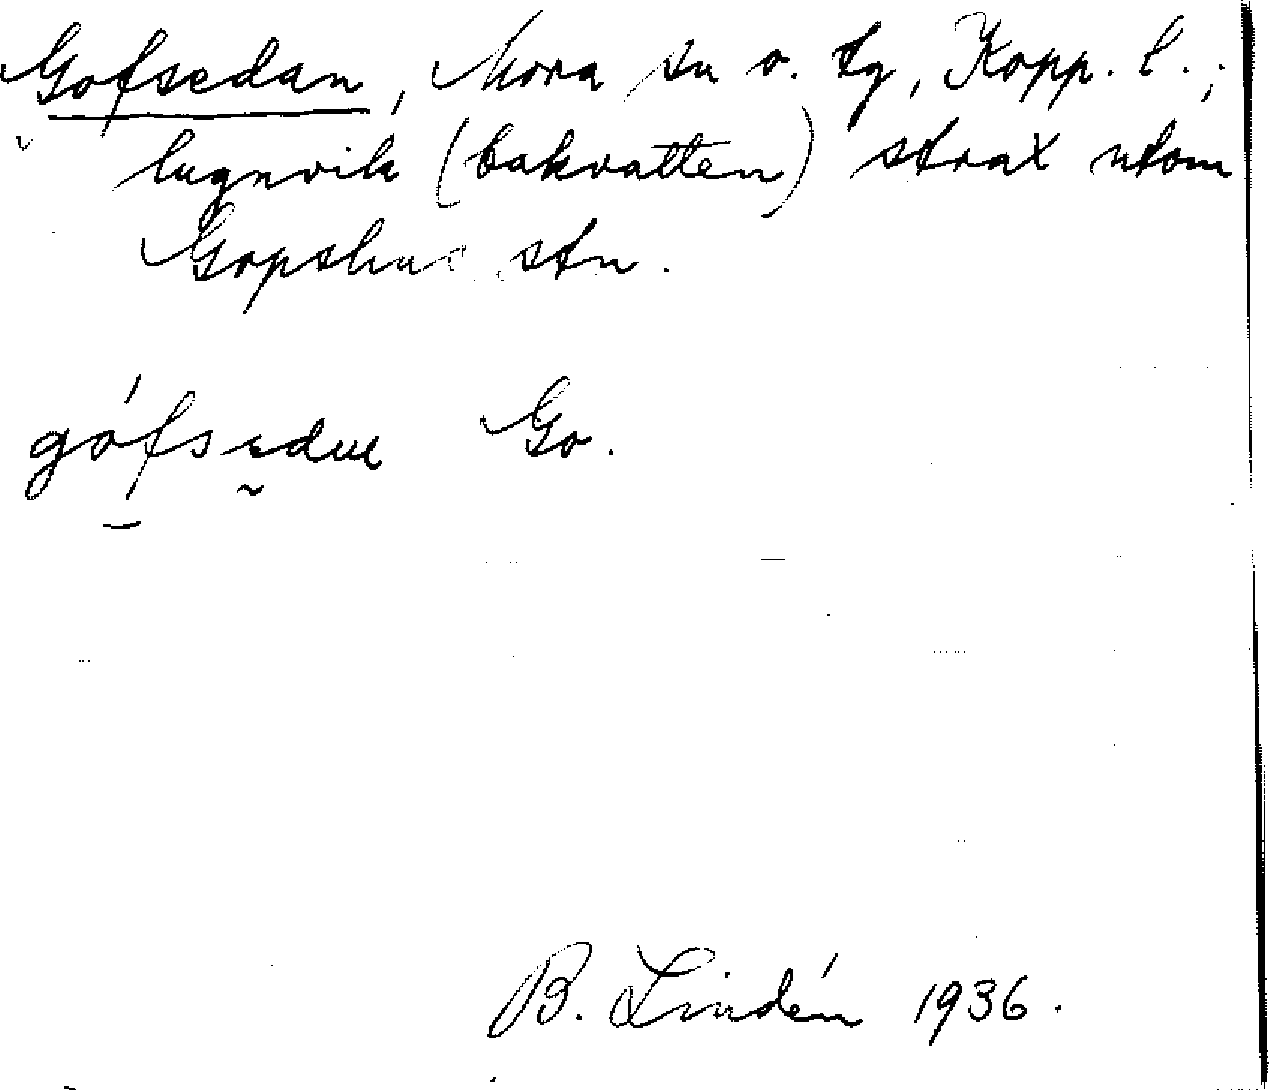 Gofsedan, Mora sn o. tg, Kopp. l.;
lugnvik (bakvatten) strax utom
Gopshus stn.
gófsedɯ Go.
B. Lindén 1936.